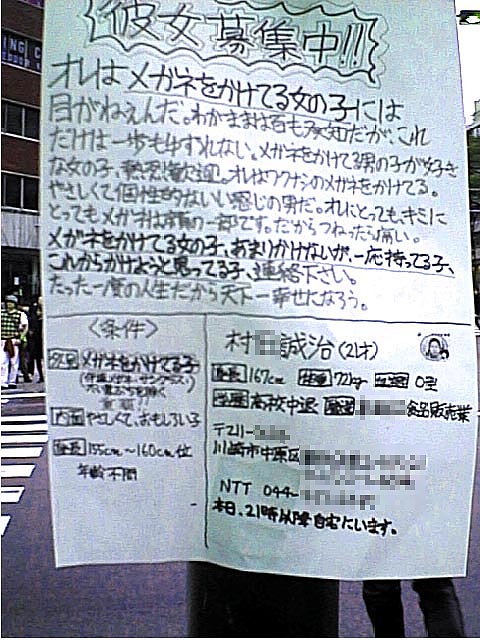 彼女募集中!!
オレはメガネをかけてる女の子には
目がねぇんだ。わがままは百も承知だが、これ
だけは一歩もゆずれない。メガネをかけてる男の子が好き
な女の子、熱烈歓迎。オレはワクナシのメガネをかけてる。
やさしくて個性的ないい感じの男だ。オレにとっても、キミに
とってもメガネは顔の一部です。だからつねったら痛い。
メガネをかけてる女の子、あまりかけないが、一応持ってる子、
これからかけようと思ってる子、連絡下さい。
たった一度の人生だから天下一幸せになろう。
〈条件〉
外見 メガネをかけてる子
内面 やさしくて、おもしろい子
身長 155cm〜160cm位
年齢不問
村 誠治(21才)
身長 167cm 体重 72kg 0円
学歴 高校中退 食品販売業
〒211-
川崎市中原区
NTT 044-
本日、21時以降自宅にいます。